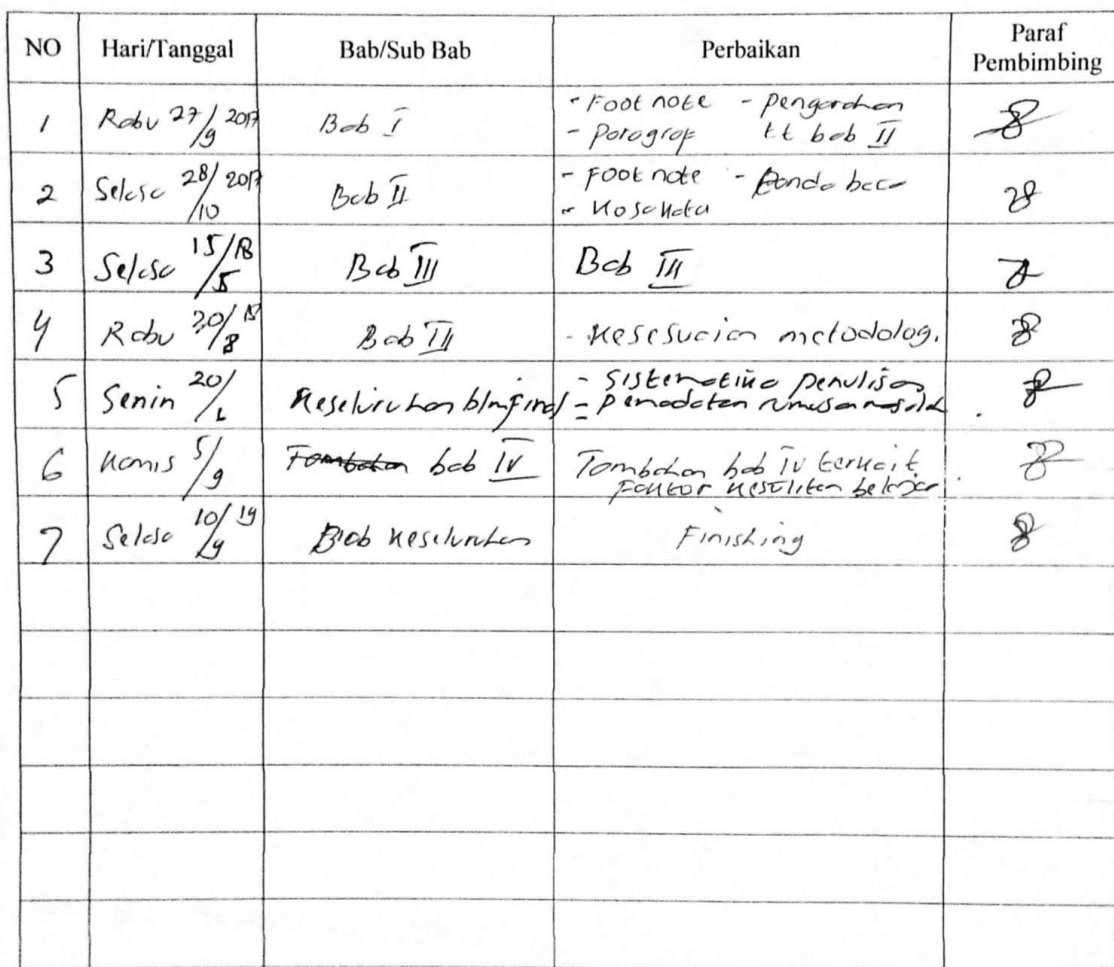 NO Hari/Tanggal Bab/Sub Bab Perbaikan Paraf Pembimbing
1 Rabu 27/9 2017 Bab I - Foot note - pengarahan
- paragraf tt bab II
2 Selasa 28/10 2017 Bab II - Foot note - tanda baca
- Kosakata
3 Selasa 15/5 18 Bab III Bab III
4 Rabu 30/8 18 Bab III - Kesesuaian metodologi
5 Senin 20/ Keseluruhan blm final - Sistematika penulisan
- pemadatan rumusan masalah
6 Kamis 5/9 Tambahan bab IV Tambahan bab IV terkait
faktor kesulitan belajar
7 Selasa 10/9 19 Bab Keseluruhan Finishing